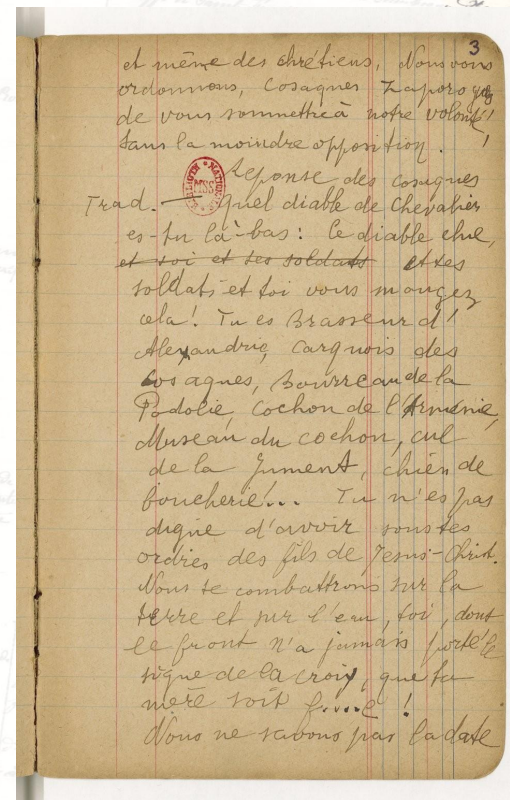 3
et même des chrétiens, Nous vous
ordonnons, cosaques Zaporogues
de vous soummettre à notre volonté!
sans la moindre opposition.
Reponse des cosaques
Trad. — Quel diable de Chevalier
es-tu là-bas: le diable chie,
et toi et tes soldats et tes
soldats et toi vous mangez
cela! Tu es Brasseur d'
Alexandrie, Carquois des
cosaques, Bourreau de la
Podolie, cochon de l'Armenie,
Museau du cochon, cul
de la Jument, chien de
boucherie!... Tu n'es pas
digne d'avoir sous tes
ordres des fils de Jesus-Christ.
Nous te combattrons sur la
terre et sur l'eau, toi, dont
le front n'a jamais porté le
signe de la croix, que ta
mère soit f....e!
Nous ne savons pas la date